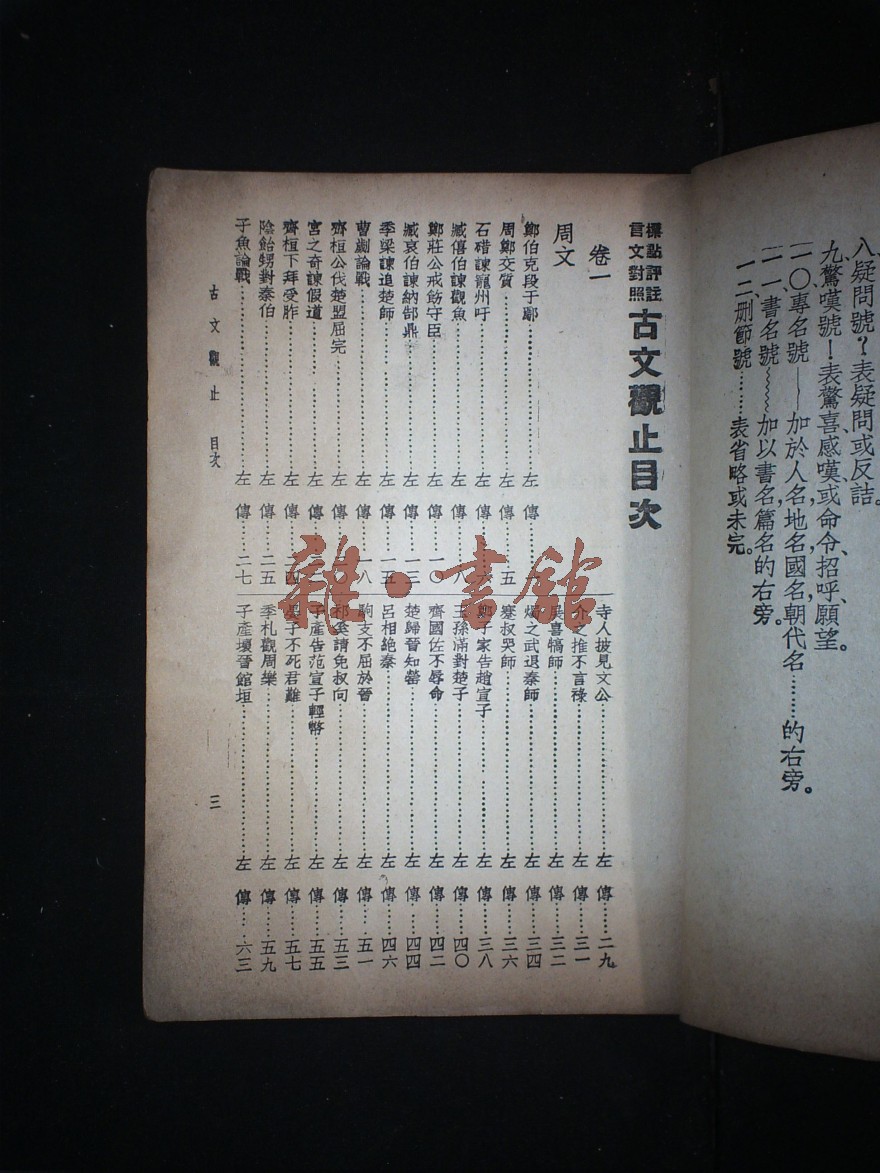 八、疑問號？表疑問或反詰。
九、驚嘆號！表驚喜、感嘆或命令、招呼、願望。
一〇、專名號——加於人名、地名、國名、朝代名……的右旁。
一一、書名號﹏﹏加以書名、篇名的右旁。
一二、刪節號……表省略或未完。
標點評註
言文對照
古文觀止目次
卷一
周文
鄭伯克段于鄢……左傳
周鄭交質……左傳……五
石碏諫寵州吁……左傳……六
臧僖伯諫觀魚……左傳……八
鄭莊公戒飭守臣……左傳……一〇
臧哀伯諫納郜鼎……左傳……一三
季梁諫追楚師……左傳……一五
曹劌論戰……左傳……一八
齊桓公伐楚盟屈完……左傳……二〇
宮之奇諫假道……左傳
齊桓下拜受胙……左傳……二四
陰飴甥對泰伯……左傳……二五
子魚論戰……左傳……二七
寺人披見文公……左傳……二九
介之推不言祿……左傳……三一
展喜犒師……左傳……三二
燭之武退泰師……左傳……三四
蹇叔哭師……左傳……三六
鄭子家告趙宣子……左傳……三八
王孫滿對楚子……左傳……四〇
齊國佐不辱命……左傳……四二
楚歸晉知罃……左傳……四四
呂相絶泰……左傳……四六
駒支不屈於晉……左傳……五一
祁奚請免叔向……左傳……五三
子產告范宣子輕幣……左傳……五五
晏子不死君難……左傳……五七
季札觀周樂……左傳……五九
子產壞晉館垣……左傳……六三
古文觀止 目次
三
雜·書館